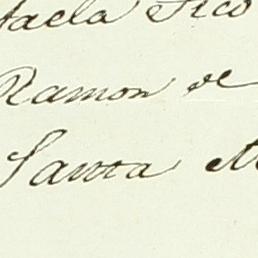 faela Pico
Ramon de
Santa M